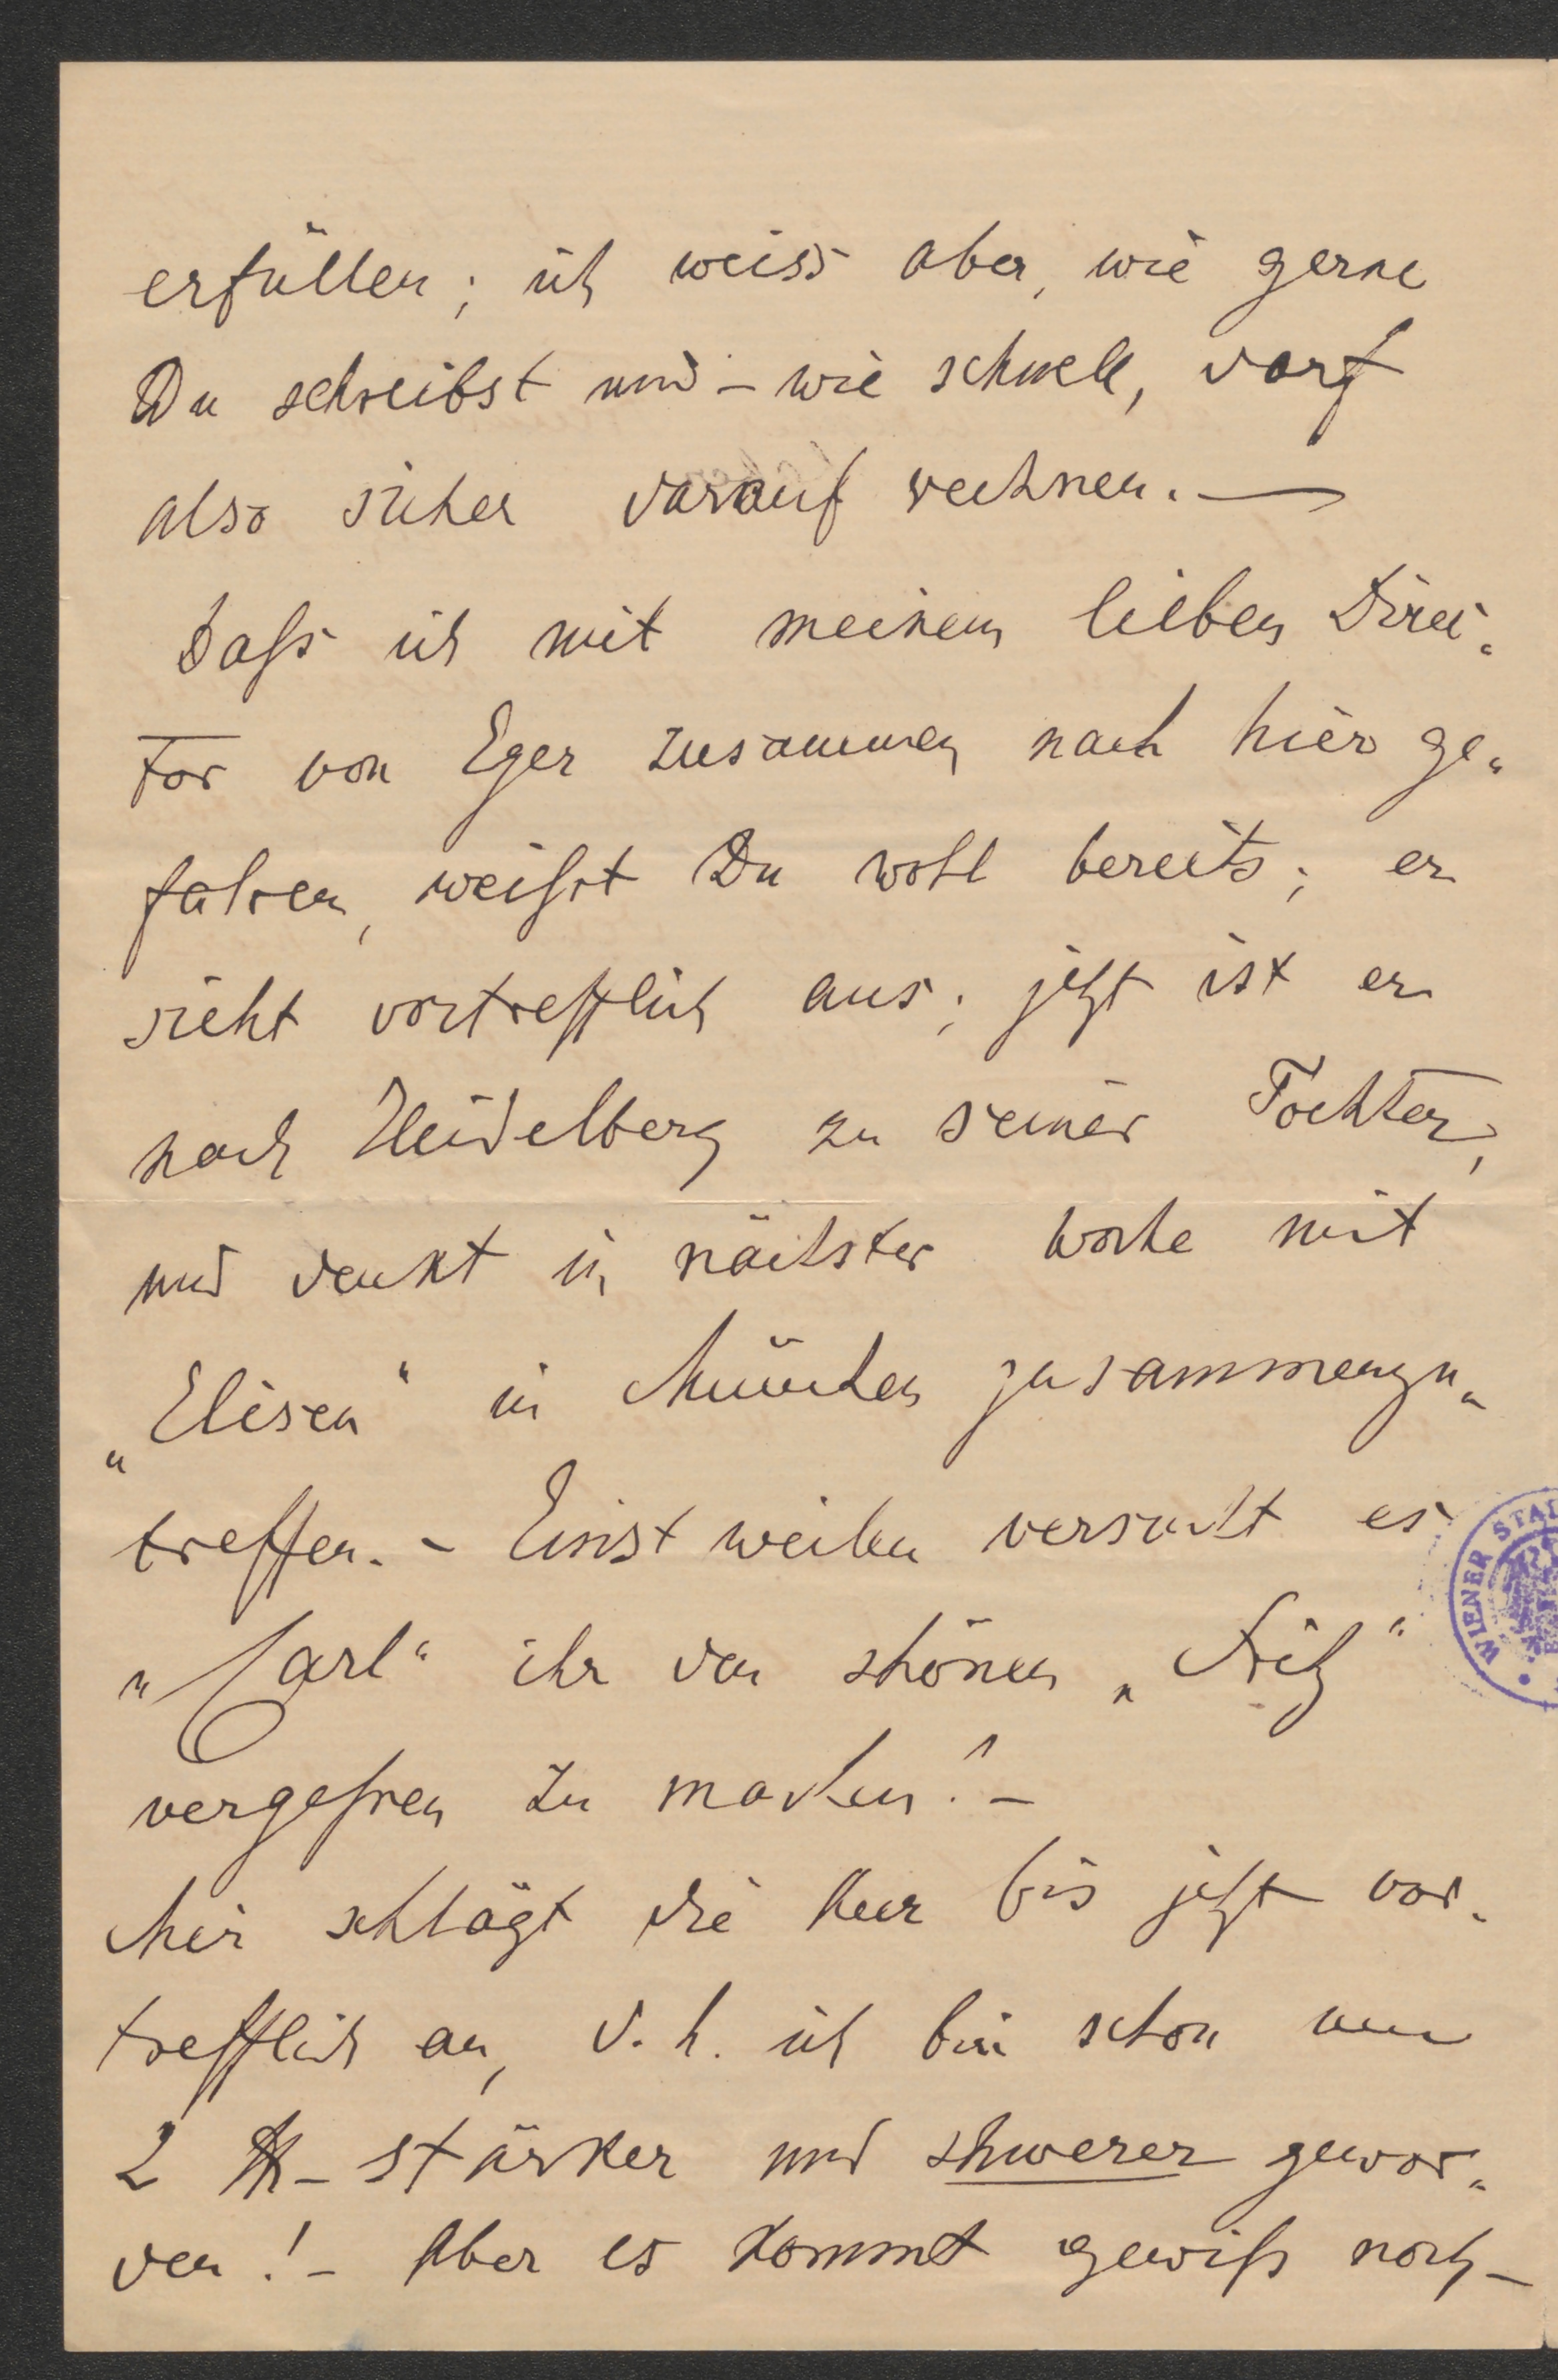 erfüllen; ich weiss aber, wie gerne
Du schreibst und – wie schnell, darf
also sicher darauf rechnen. —
Daſs ich mit meinem lieben Direc-
tor von Eger zusammen nach hier ge-
fahren, weiſst Du wohl bereits; er
sieht vortrefflich aus; jetzt ist er
nach Heidelberg zu seiner Tochter,
und denkt in nächster Woche mit
„Elisen“ in München zusammenzu-
treffen. – Einstweilen versucht es
„Carl“ ihr den schönen „Fritz“
vergeſsen zu machen! –
Mir schlägt die Kur bis jetzt vor-
trefflich an, d. h. ich bin schon um
2 ℔ – stärker und schwerer gewor-
den! – Aber es kommt gewiſs noch –
WIENER STAD